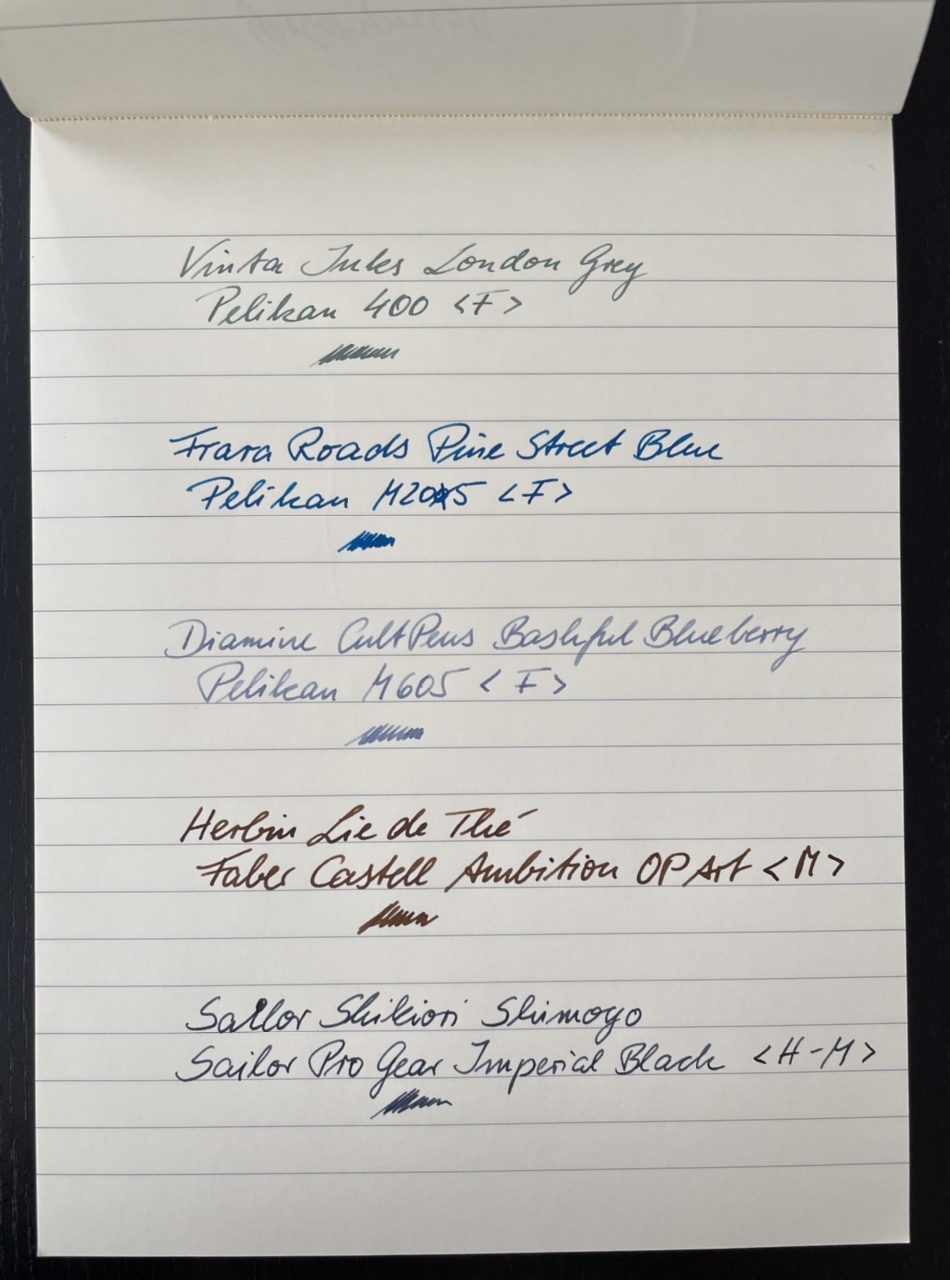 Vinta Inks London Grey
Pelikan 400 <F>
Pine Street Blue
Pelikan M205 <F>
Diamine CultPens Bashful Blueberry
Pelikan M605 <F>
Herbin Lie de Thé
Faber Castell Ambition OP Art <M>
Sailor Shikiori Shimoyo
Sailor Pro Gear Imperial Black <H-M>